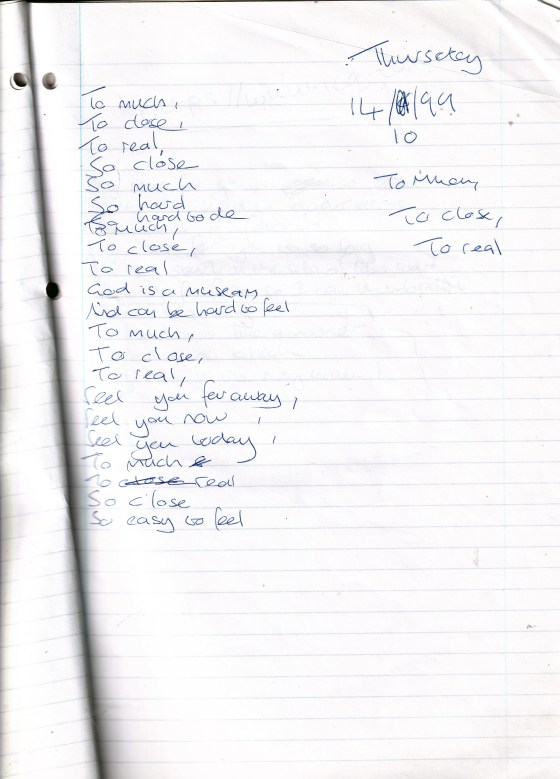 Thursday
14/99
10
To much,
To close,
To real,
So close
So much
So hard
hard to de
To much,
To close,
To real
God is a museam
And can be hard to feel
To much,
To close,
To real,
Feel you far away,
Feel you now,
Feel you today,
To much
To close real
So close
So easy to feel
To Much,
To close,
To real